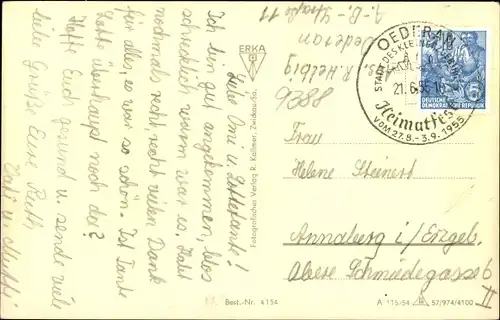 Liebe Omi u. Lottetante!
Ich bin gut angekommen, blos
schrecklich warm war es. Habt
nochmals recht, recht vielen Dank
für alles, es war so schön. Ist Tante
Lotte überhaupt noch da?
Hoffe Euch gesund u. sende viele
liebe Grüße Eure Ruth
u. Mutti
ERKA
Fotografischer Verlag R. Kallmer, Zwickau-Sa.
Best.-Nr. 4154
R. Helbig
Oederan
9388
OEDERAN
STADT DES KLEIN-ERZGEBIRGE
21.6.55
Heimatfest
VOM 27.8.-3.9.1955
DEUTSCHE
DEMOKRATISCHE REPUBLIK
Frau
Helene Steinert
Annaberg i/Erzgeb.
Obere Schmiedegasse 6
II
A 115/54 57/974/4100